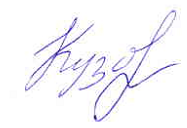 Кузо